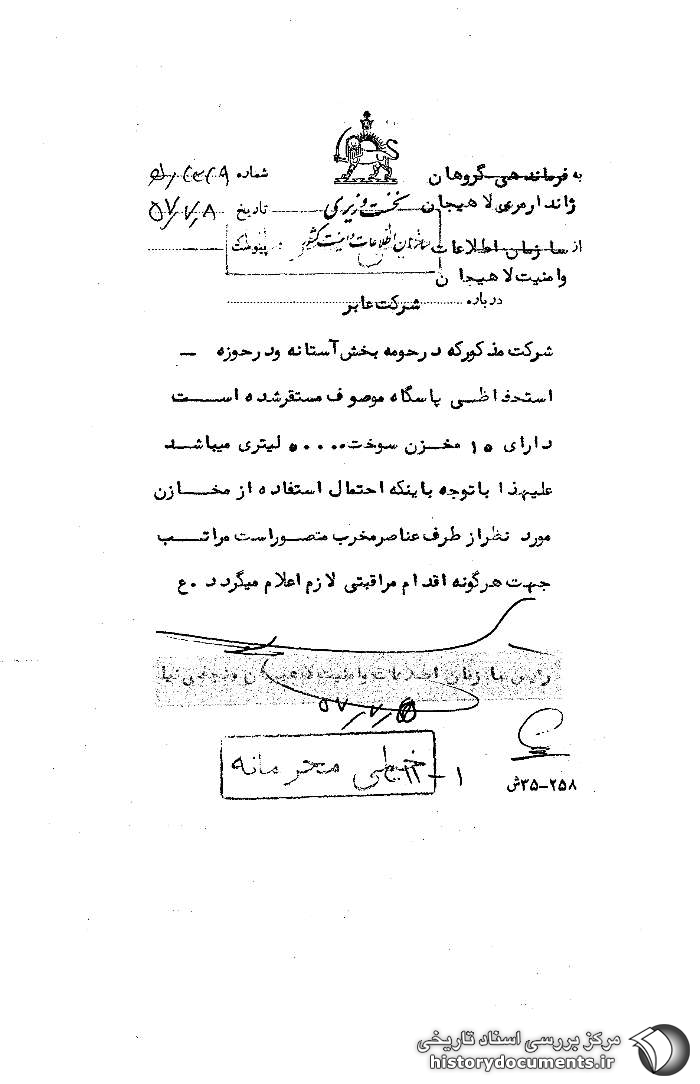 به فرماندهی گروهان
ژاندارمری لاهیجان
نخست وزیری
سازمان اطلاعات و امنیت کشور
شماره
تاریخ ۵۷/۷/۸
پیوست
از سازمان اطلاعات
وامنیت لاهیجان
درباره شرکت عابر
شرکت مذکورکه درحومه بخش آستانه ودرحوزه –
استحفاظی پاسگاه موصوف مستقرشده است
دارای ۱۵ مخزن سوخت ۵۰۰۰۰ لیتری میباشد
علیهذا باتوجه باینکه احتمال استفاده از مخازن
مورد نظراز طرف عناصرمخرب متصوراست مراتب
جهت هرگونه اقدام مراقبتی لازم اعلام میگردد .ع
رئیس سازمان اطلاعات وامنیت لاهیجان
۵۷/۷/۸
خیلی محرمانه
۱-۱۱
۲۵۸-۳۵ش
مرکز بررسی اسناد تاریخی
historydocuments.ir